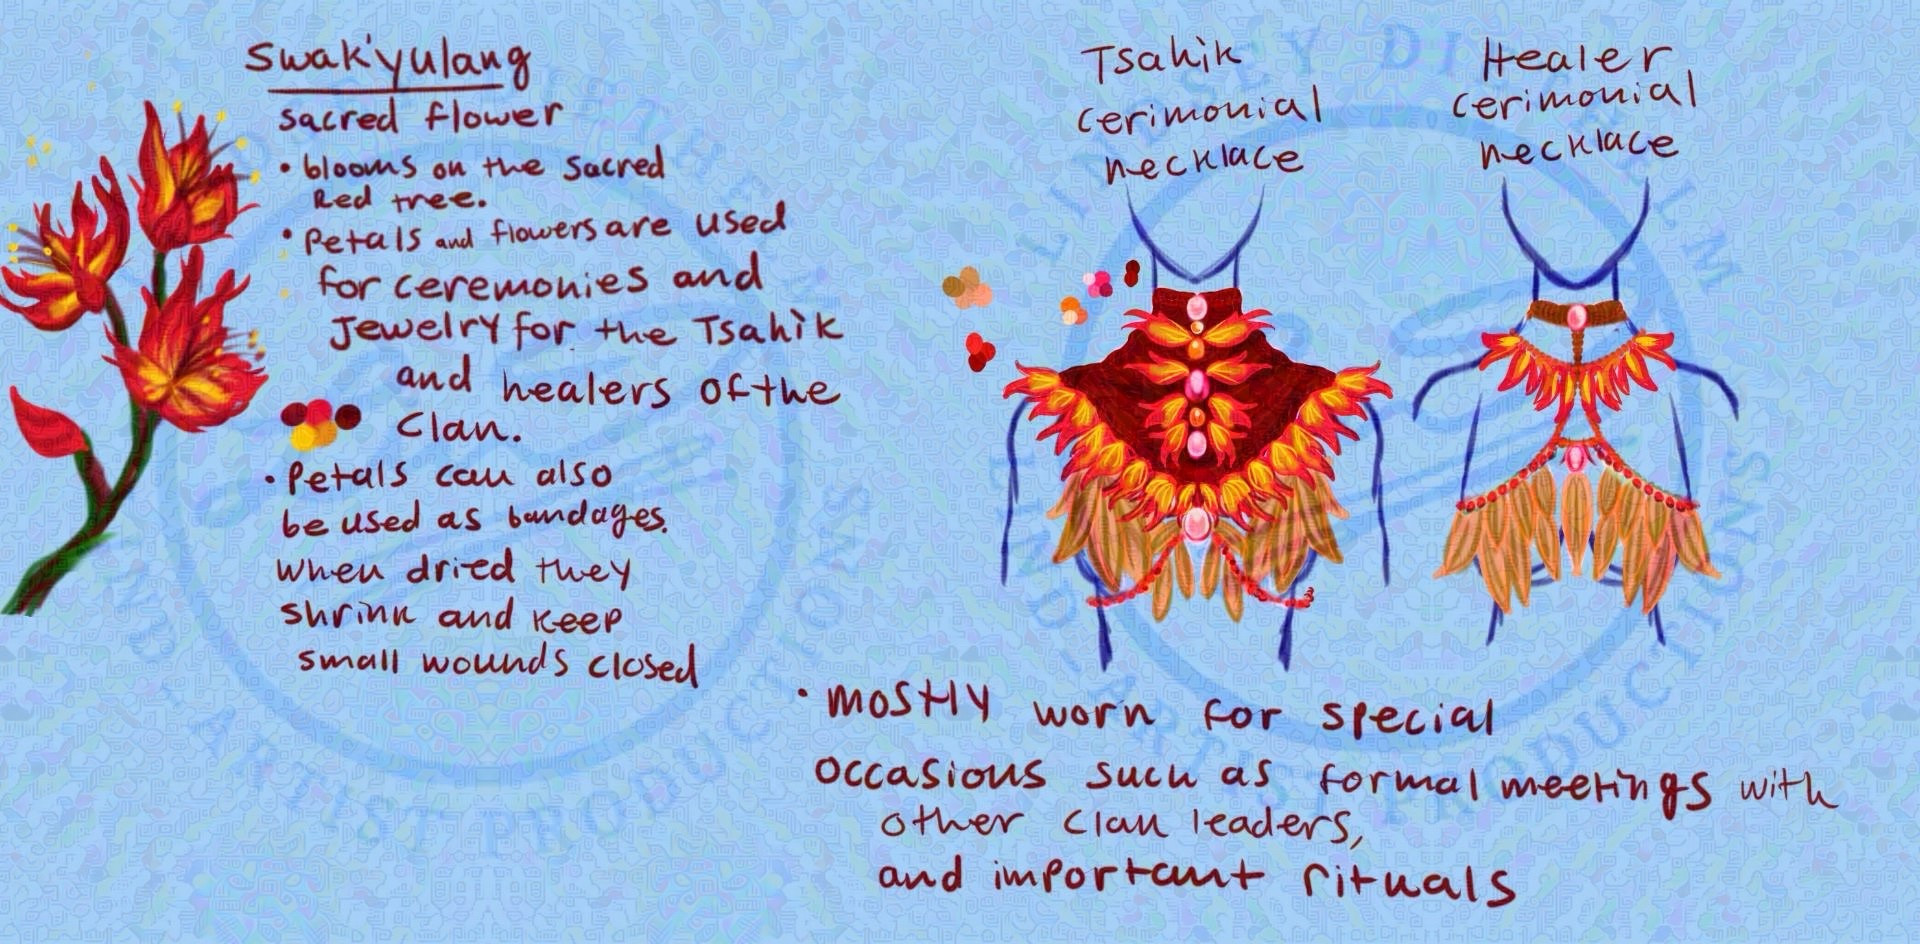 Swak'yulang
sacred flower
• blooms on the sacred
Red tree.
• Petals and flowers are used
for ceremonies and
Jewelry for the Tsahìk
and healers of the
Clan.
• Petals can also
be used as bandages.
when dried they
shrink and keep
small wounds closed
Tsahik
cerimonial
necklace
Healer
cerimonial
necklace
• mostly worn for special
occasions such as formal meetings with
other clan leaders,
and important rituals